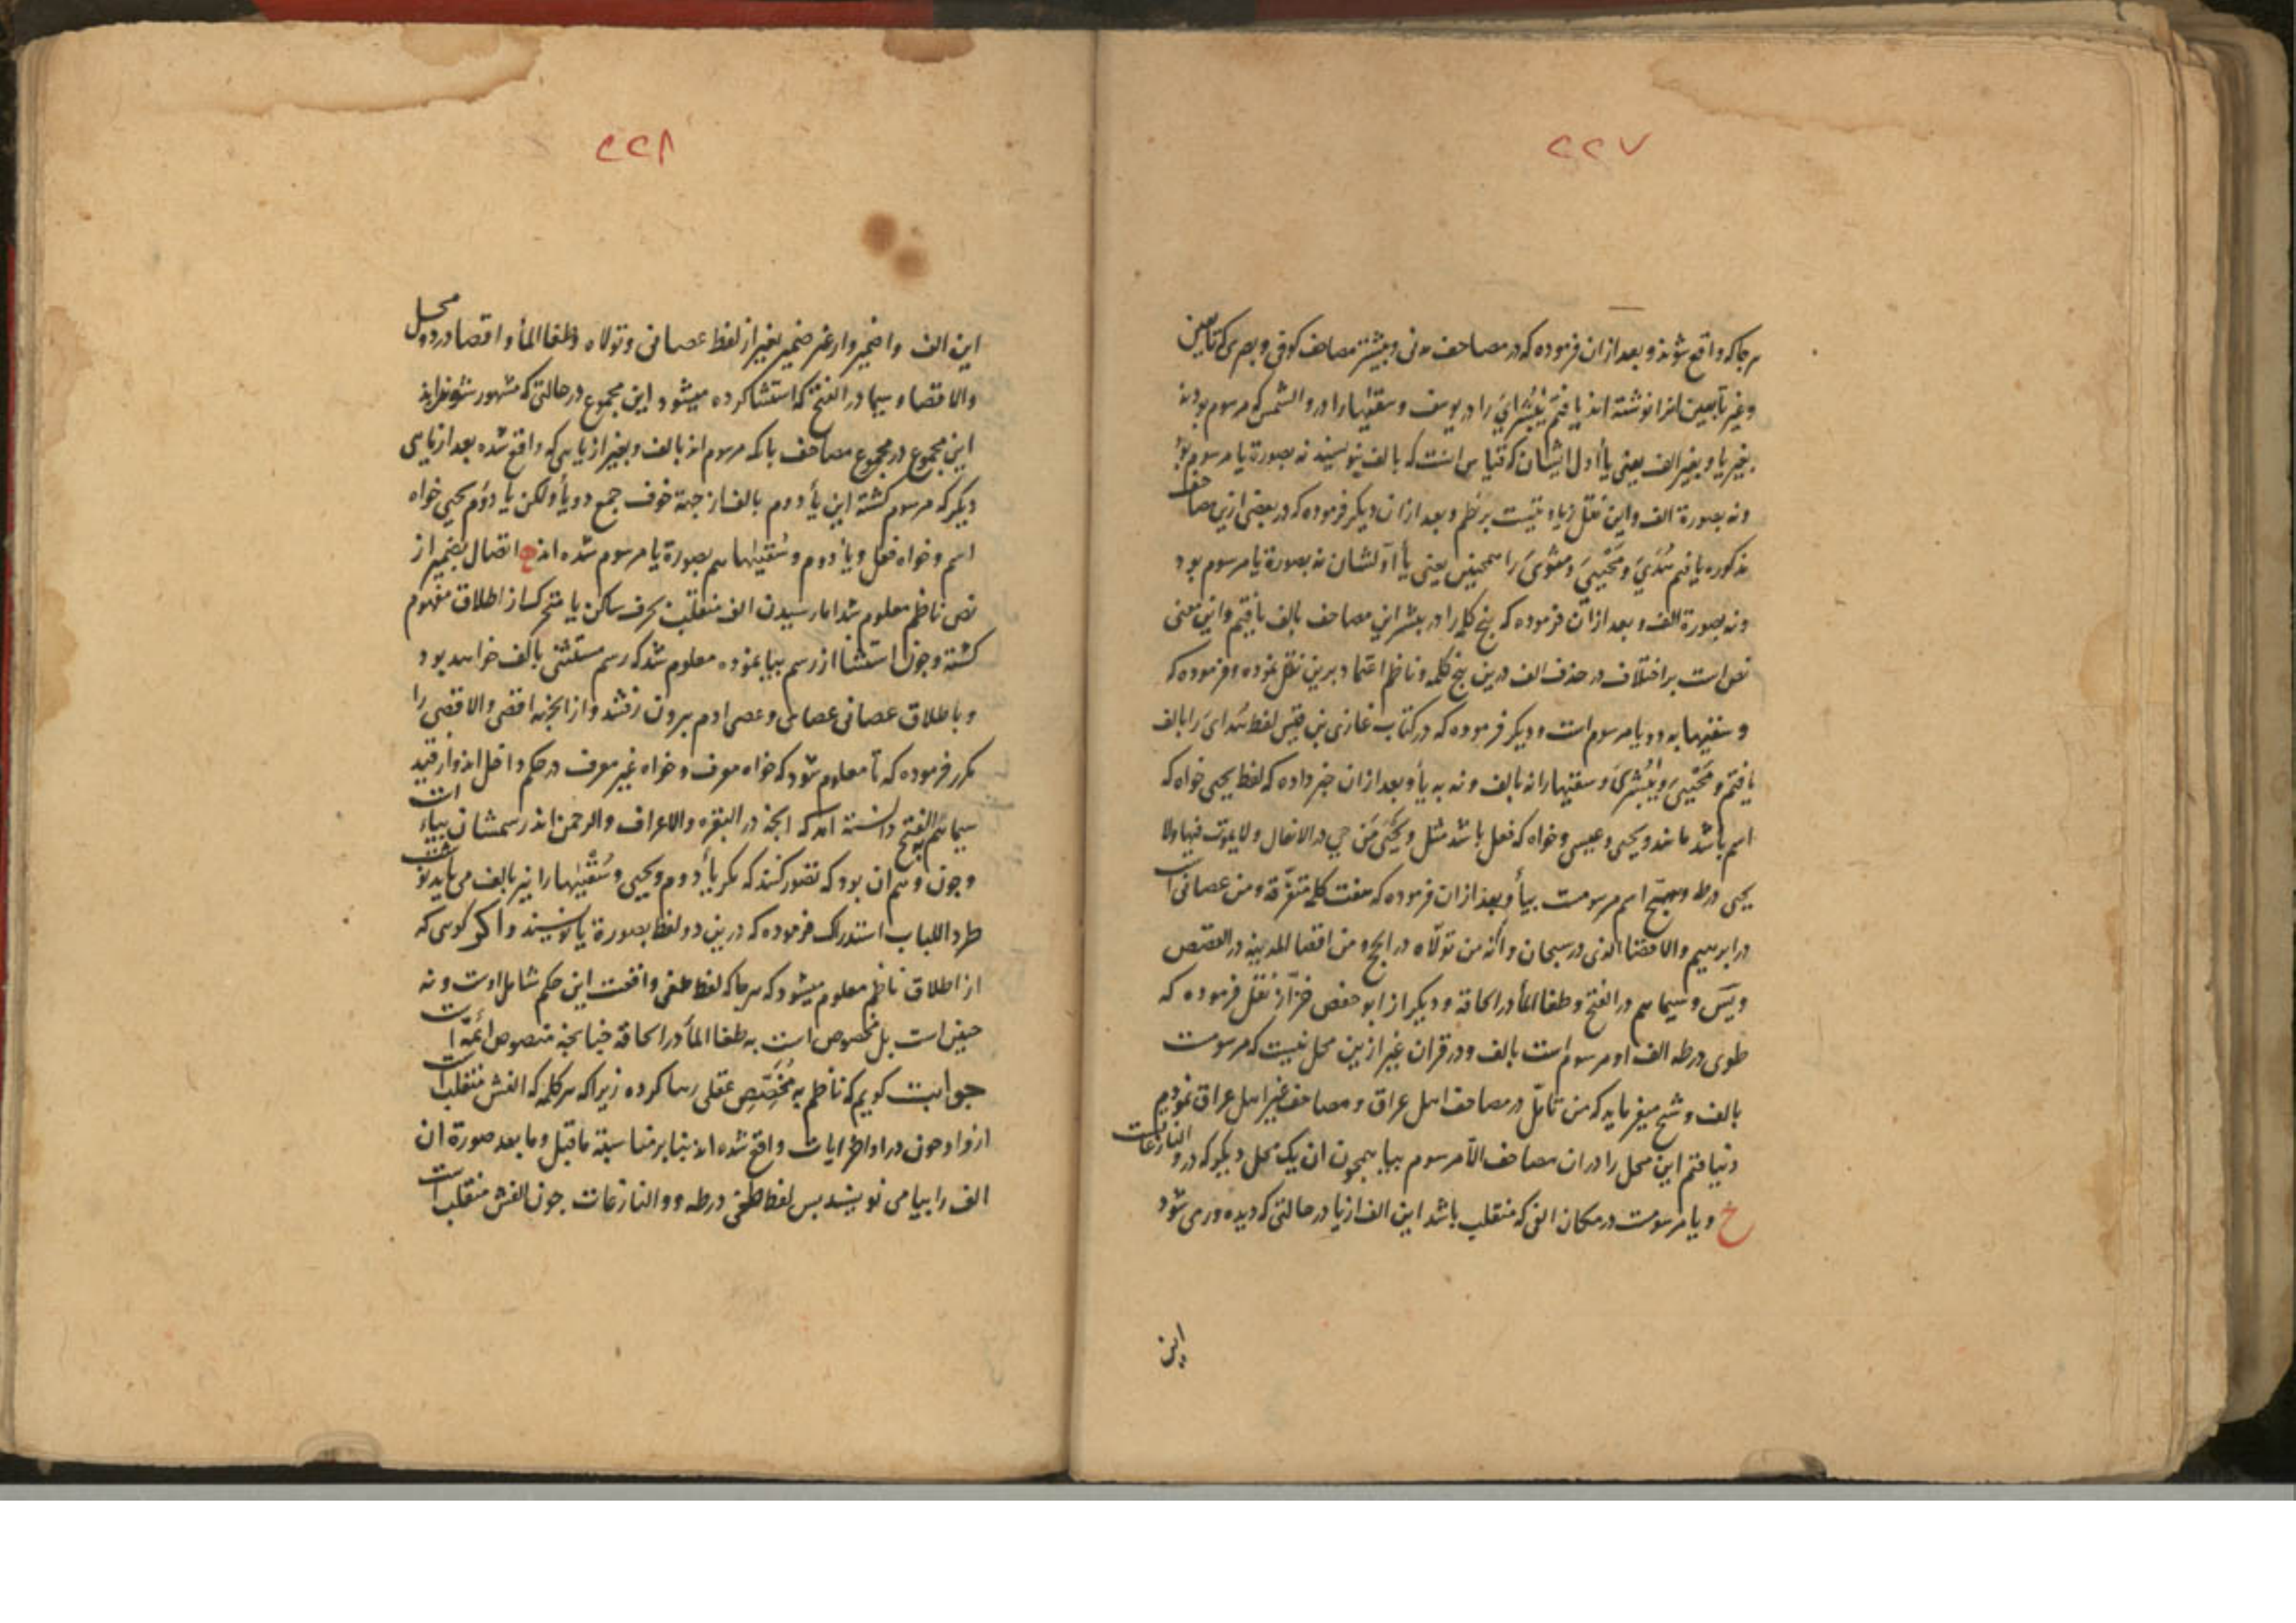 ٢٢٧
هرجا که واقع شوند و بعد ازان فرموده که در مصاحف مدنی و بیشتر مصاحف کوفی و بصری که تابعین
و غیر تابعین انرا نوشته اند یافتم یٰبُشْرایَ را در یوسف و سقیٰها را در والشمس که مرسوم بودند
بغیر یا و بغیر الف یعنی یأ اول ایشان که قیاس انست که بالف بنویسند نه بصورة یا مرسوم بود
و نه بصورة الف و این نقل زیادتیست بر نظم و بعد ازان دیکر فرموده که در بعضی ازین مصاحف
مذکوره یافتم هُدَیَ و مَحْیَیَ و مثوَیَ را همچنین یعنی یأ اولشان نه بصورة یا مرسوم بود
و نه بصورة الف و بعد ازان فرموده که پنج کلمه را در بیشتر این مصاحف بالف یافتم و این معنی
نص است بر اختلاف در حذف الف درین پنج کلمه و ناظم اعتماد برین نقل نموده و فرموده که
و سقیٰها به دو یا مرسوم است و دیکر فرموده که در کتاب غازی بن قیس لفظ هُدایَ را بالف
یافتم و مَحْیَیَ و یٰبُشْریَ و سقیٰها را نه بالف و نه به یأ و بعد ازان خبر داده که لفظ یحیی خواه که
اسم باشد مانند و یحیی و عیسی و خواه که فعل باشد مثل و یَحْیَی مَن حی در الانفال و لا یموت فیها ولا
یحیی در طه و سبّح اسم مرسومست بیأ و بعد ازان فرموده که هفت کلمه متفرّقه و من عصانی است
در ابرهیم و الاقصا الذی در سبحان و انّه من تولّاه در الحج و من اقصا المدینه در القصص
و یسٓ و سیماهم در الفتح و طغا المأ در الحاقة و دیکر از ابو حفص خزّاز نقل فرموده که
طوی در طه الف او مرسوم است بالف و در قران غیر ازین محل نیست که مرسومست
بالف و شیخ میفرماید که من تامّل در مصاحف اهل عراق و مصاحف غیر اهل عراق نمودیم
و نیافتم این محل را دران مصاحف الّا مرسوم بیا همچون ان یک محل دیکر که در والنازعات
و یا مرسومست در مکان الفی که منقلب باشد این الف از یا در حالتی که دیده ور می شود
این
٢٢٨
این الف با ضمیر و از غیر ضمیر بغیر از لفظ عصانی و تولاه و طغا المأ و اقصا در دو محل
و الاقصا و سیما در الفتح که استثنا کرده میشود این مجموع در حالتی که مشهور شونده‌اند
این مجموع در مجموع مصاحف بانکه مرسوم اند بالف و بغیر از یایی که واقع شده بعد از یایی
دیکر که مرسوم کشته این یأ دوم بالف از جهة خوف جمع دو یأ و لکن یا دوم یحیی خواه
اسم و خواه فعل و یأ دوم و سُقیٰها هم بصورة یا مرسوم شده اند اتصال بضمیر از
نص ناظم معلوم شد اما رسیدن الف منقلب بحرف ساکن یا متحرک از اطلاق مفهوم
کشته و چون استثنا از رسم بیا نموده معلوم شد که رسم مستثنی بالف خواهد بود
و باطلاق عصانی عصای و عصی ادم بیرون رفتند و از انجهة اقصی و الاقصی را
مکرر فرموده که تا معلوم شود که خواه معرف و خواه غیر معرف در حکم داخل اند و از قید
سیماهُم الفتح دانسته امد که انچه در البقره و الاعراف و الرحمن اند رسمشان بیاء است
و چون وهم ان بود که تصور کنند که مکر یأ دوم و یحیی و سُقْیٰها را نیز بالف می باید نوشت
طرد اللباب استدراک فرموده که درین دو لفظ بصورة یا نویسند و اکر کوسی که
از اطلاق ناظم معلوم میشود که هرجا که لفظ طغی واقعست این حکم شامل اوست و نه
چنین است بل مخصوص است به طغا المأ در الحاقة چنانچه منصوص ائمّة است
جوابت کویم که ناظم به مُخَصِّصِ عقلی رها کرده زیرا که هر کلمه که الفش منقلب است
از واو چون در اواخر ایات واقع شده اند بنا بر مناسبة ماقبل و ما بعد صورة ان
الف را بیا می نویسند پس لفظ طغی در طه و والنازعات چون الفش منقلب است